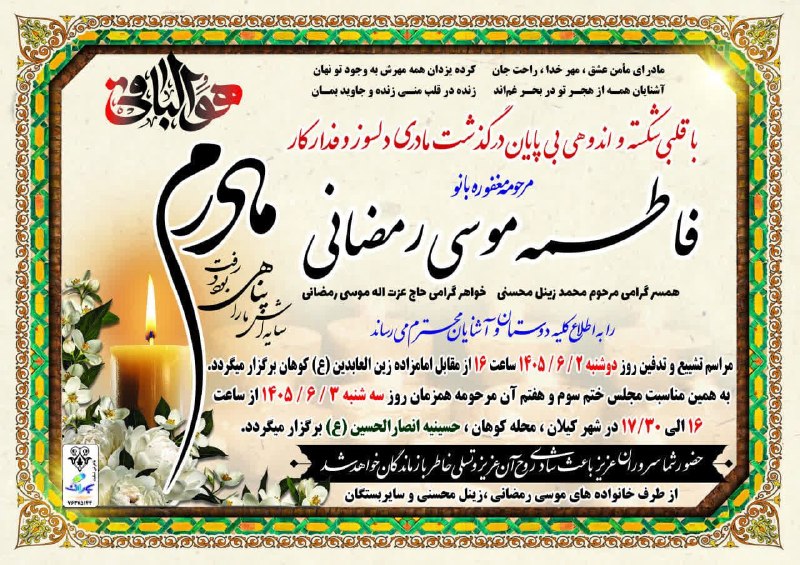 مادر ای مأمن عشق ، مهر خدا ، راحت جان    کرده یزدان همه مهرش به وجود تو نهان
آشنایان همه از هجر تو در بحر غم‌اند    زنده در قلب منی زنده و جاوید بمان
هو الباقی
با قلبی شکسته و اندوهی بی پایان درگذشت مادری دلسوز و فدارکار
مرحومه مغفوره بانو
فاطمه موسی رمضانی
مادرم
بود و رفت
پناهی
سایه اش ما را
همسر گرامی مرحوم محمد زینل محسنی    خواهر گرامی حاج عزت اله موسی رمضانی
را به اطلاع کلیه دوستان و آشنایان محترم می رساند
مراسم تشییع و تدفین روز دوشنبه ۲ / ۶ / ۱۴۰۵ ساعت ۱۶ از مقابل امامزاده زین العابدین (ع) کوهان برگزار میگردد.
به همین مناسبت مجلس ختم سوم و هفتم آن مرحومه همزمان روز سه شنبه ۳ / ۶ / ۱۴۰۵ از ساعت
۱۶ الی ۱۷/۳۰ در شهر کیلان ، محله کوهان ، حسینیه انصارالحسین (ع) برگزار میگردد.
حضور شما سروران عزیز باعث شادی روح آن عزیز و تسلی خاطر بازماندگان خواهد شد
از طرف خانواده های موسی رمضانی ،زینل محسنی و سایربستگان